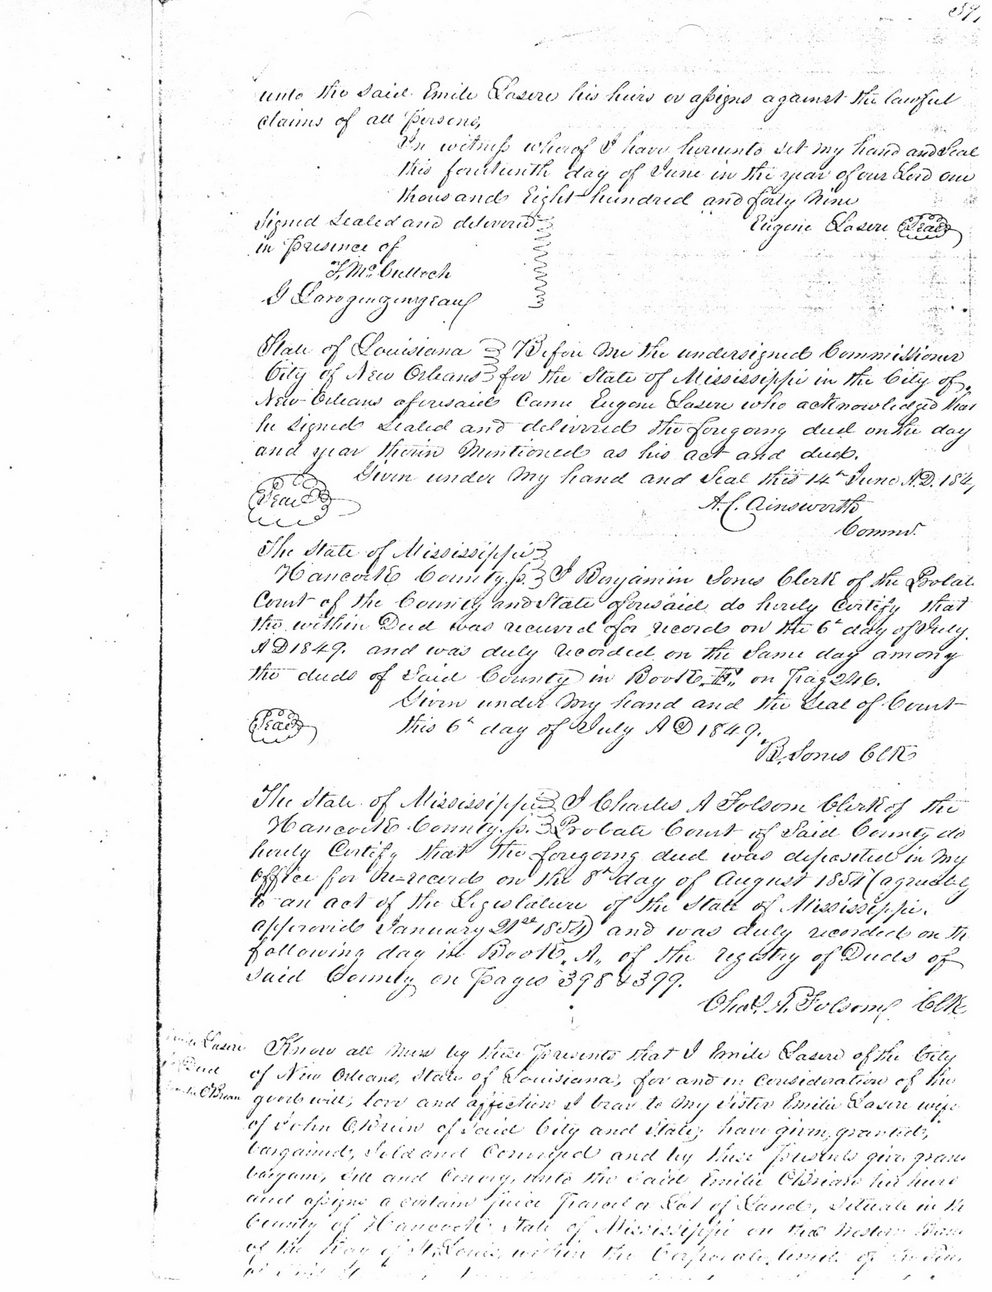 unto the said Emile Lasere his heirs or assigns against the lawful
claims of all persons,
In witness whereof I have hereunto set my hand and Seal
this fourteenth day of June in the year of our Lord one
thousand Eight hundred and forty Nine
Signed Sealed and delivered
Eugene Lasere Seal
in presence of
T. McCulloch
State of Louisiana Before Me the undersigned Commissioner
City of New Orleans for the State of Mississippi in the City of
New-Orleans aforesaid Came Eugene Lasere who acknowledged that
he signed Sealed and delivered the foregoing deed on the day
and year therin Mentioned as his act and deed.
Given under My hand and Seal this 14th June A.D. 184
Seal
A. C. Ainsworth
Commr.
The State of Mississippi
Hancock County. ss. I Benjamin Sones Clerk of the Probate
Court of the County and State aforesaid do herely Certify that
the within Deed was received for record on the 6th day of July
AD 1849. and was duly recorded on the Same day among
the deeds of Said County in Book on Pag 246.
Given under My hand and the Seal of Court
Seal
this 6th day of July A D 1849.
B. Sones Clk
The State of Mississippi I Charles A Folsom Clerk of the
Hancock County. ss. Probate Court of Said County do
herely Certify that the foregoing deed was deposited in My
office for re-record on the 8th day of August 1854 (agreeably
to an act of the Legislature of the State of Mississippi.
approved January 21st 1854) and was duly recorded on the
following day in Book. A. of the registry of Deeds of
Said County on Pages 398 & 399.
Chas. A. Folsom Clk
Lasere
Deed
OBrian
Know all Men by these Presents that I Emile Lasere of the City
of New Orleans, State of Louisiana, for and in consideration of the
good will, love and affection I bear to My Sister Emilie Lasere wife
of John OBrien of Said City and State; have given, granted,
bargained, Sold and Conveyed and by these Presents give grant
bargain, Sell and Convey, unto the Said Emilie OBrian her heirs
and assigns a certain piece Parcel or Lot of Land, Situate in the
County of Hancock State of Mississippi on the Western Shore
of the Bay of St. Louis, within the Corporate limits of